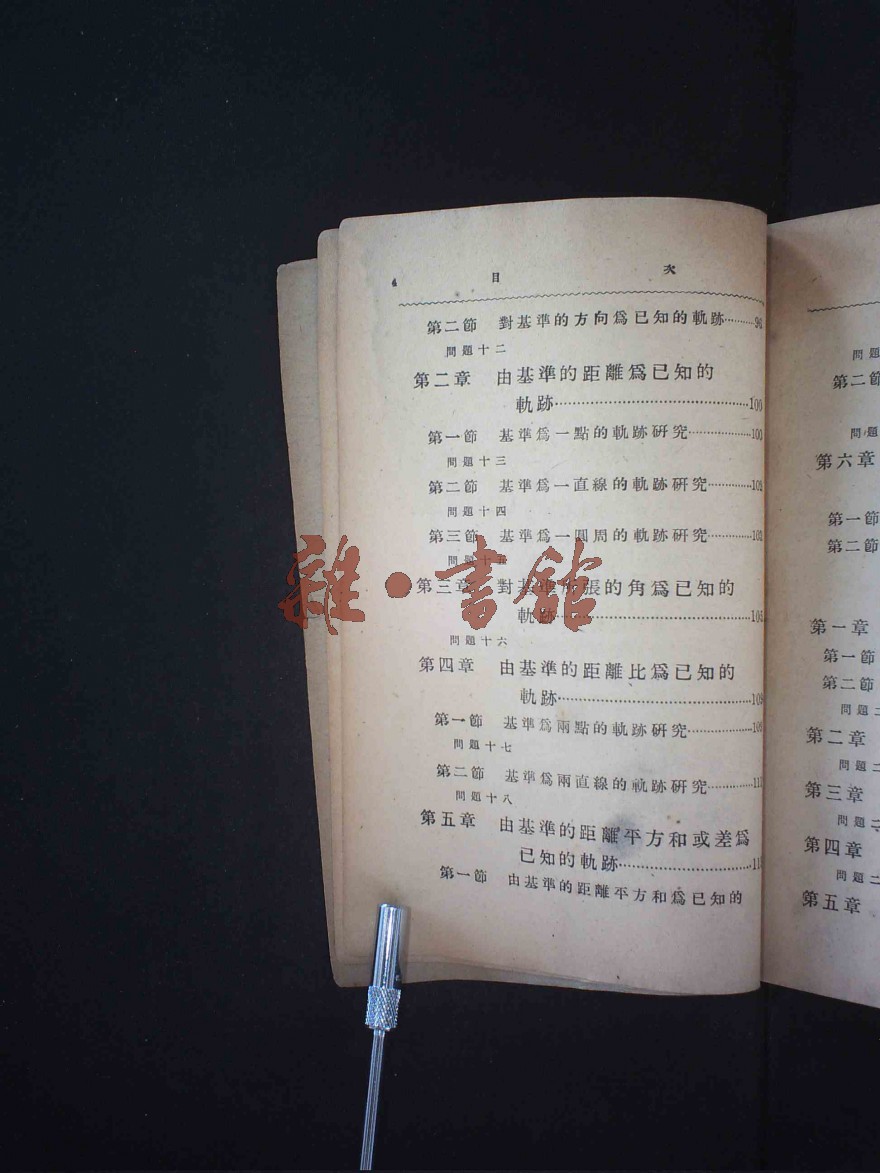 4 目 次
第二節 對基準的方向爲已知的軌跡………90
問題十二
第二章 由基準的距離爲已知的
軌跡………100
第一節 基準爲一點的軌跡研究………100
問題十三
第二節 基準爲一直線的軌跡研究………102
問題十四
第三節 基準爲一圓周的軌跡研究………103
問題十五
第三章 對基準所張的角爲已知的
軌跡………105
問題十六
第四章 由基準的距離比爲已知的
軌跡………
第一節 基準爲兩點的軌跡研究………
問題十七
第二節 基準爲兩直線的軌跡研究………
問題十八
第五章 由基準的距離平方和或差爲
已知的軌跡………
第一節 由基準的距離平方和爲已知的
雜·書館
問題
第二節
問題
第六章
第一節
第二節
第一章
第一節
第二節
問題二
第二章
問題二
第三章
問題二
第四章
問題二
第五章